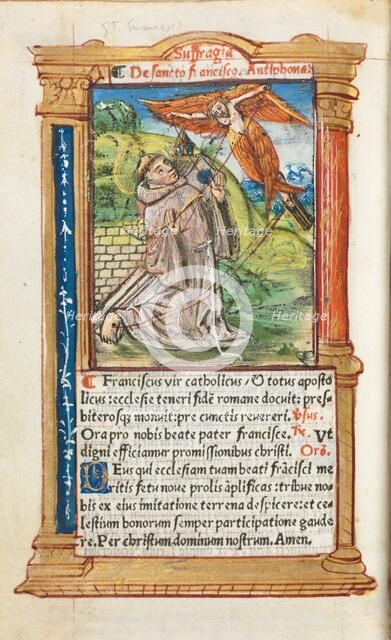 ST. Francis
Suffragia
¶ De sancto frācisco. Antiphona
¶ Franciscus vir catholicus, & totus aposto
licus: ecclesie teneri fidē romane docuit: pres⸗
biterosq; monuit: pre cunctis revereri. ℣sus.
Ora pro nobis beate pater francisce. ℟. Ut
digni efficiamur promissionibus christi. Orō.
DEus qui ecclesiam tuam beati frācisci me
ritis fetu nove prolis āplificas: tribue no⸗
bis ex eius imitatione terrena despicere: et ce⸗
lestium bonorum semper participatione gaude
re. Per christum dominum nostrum. Amen.
heritage
Heritage
heritage
Heritage
Images